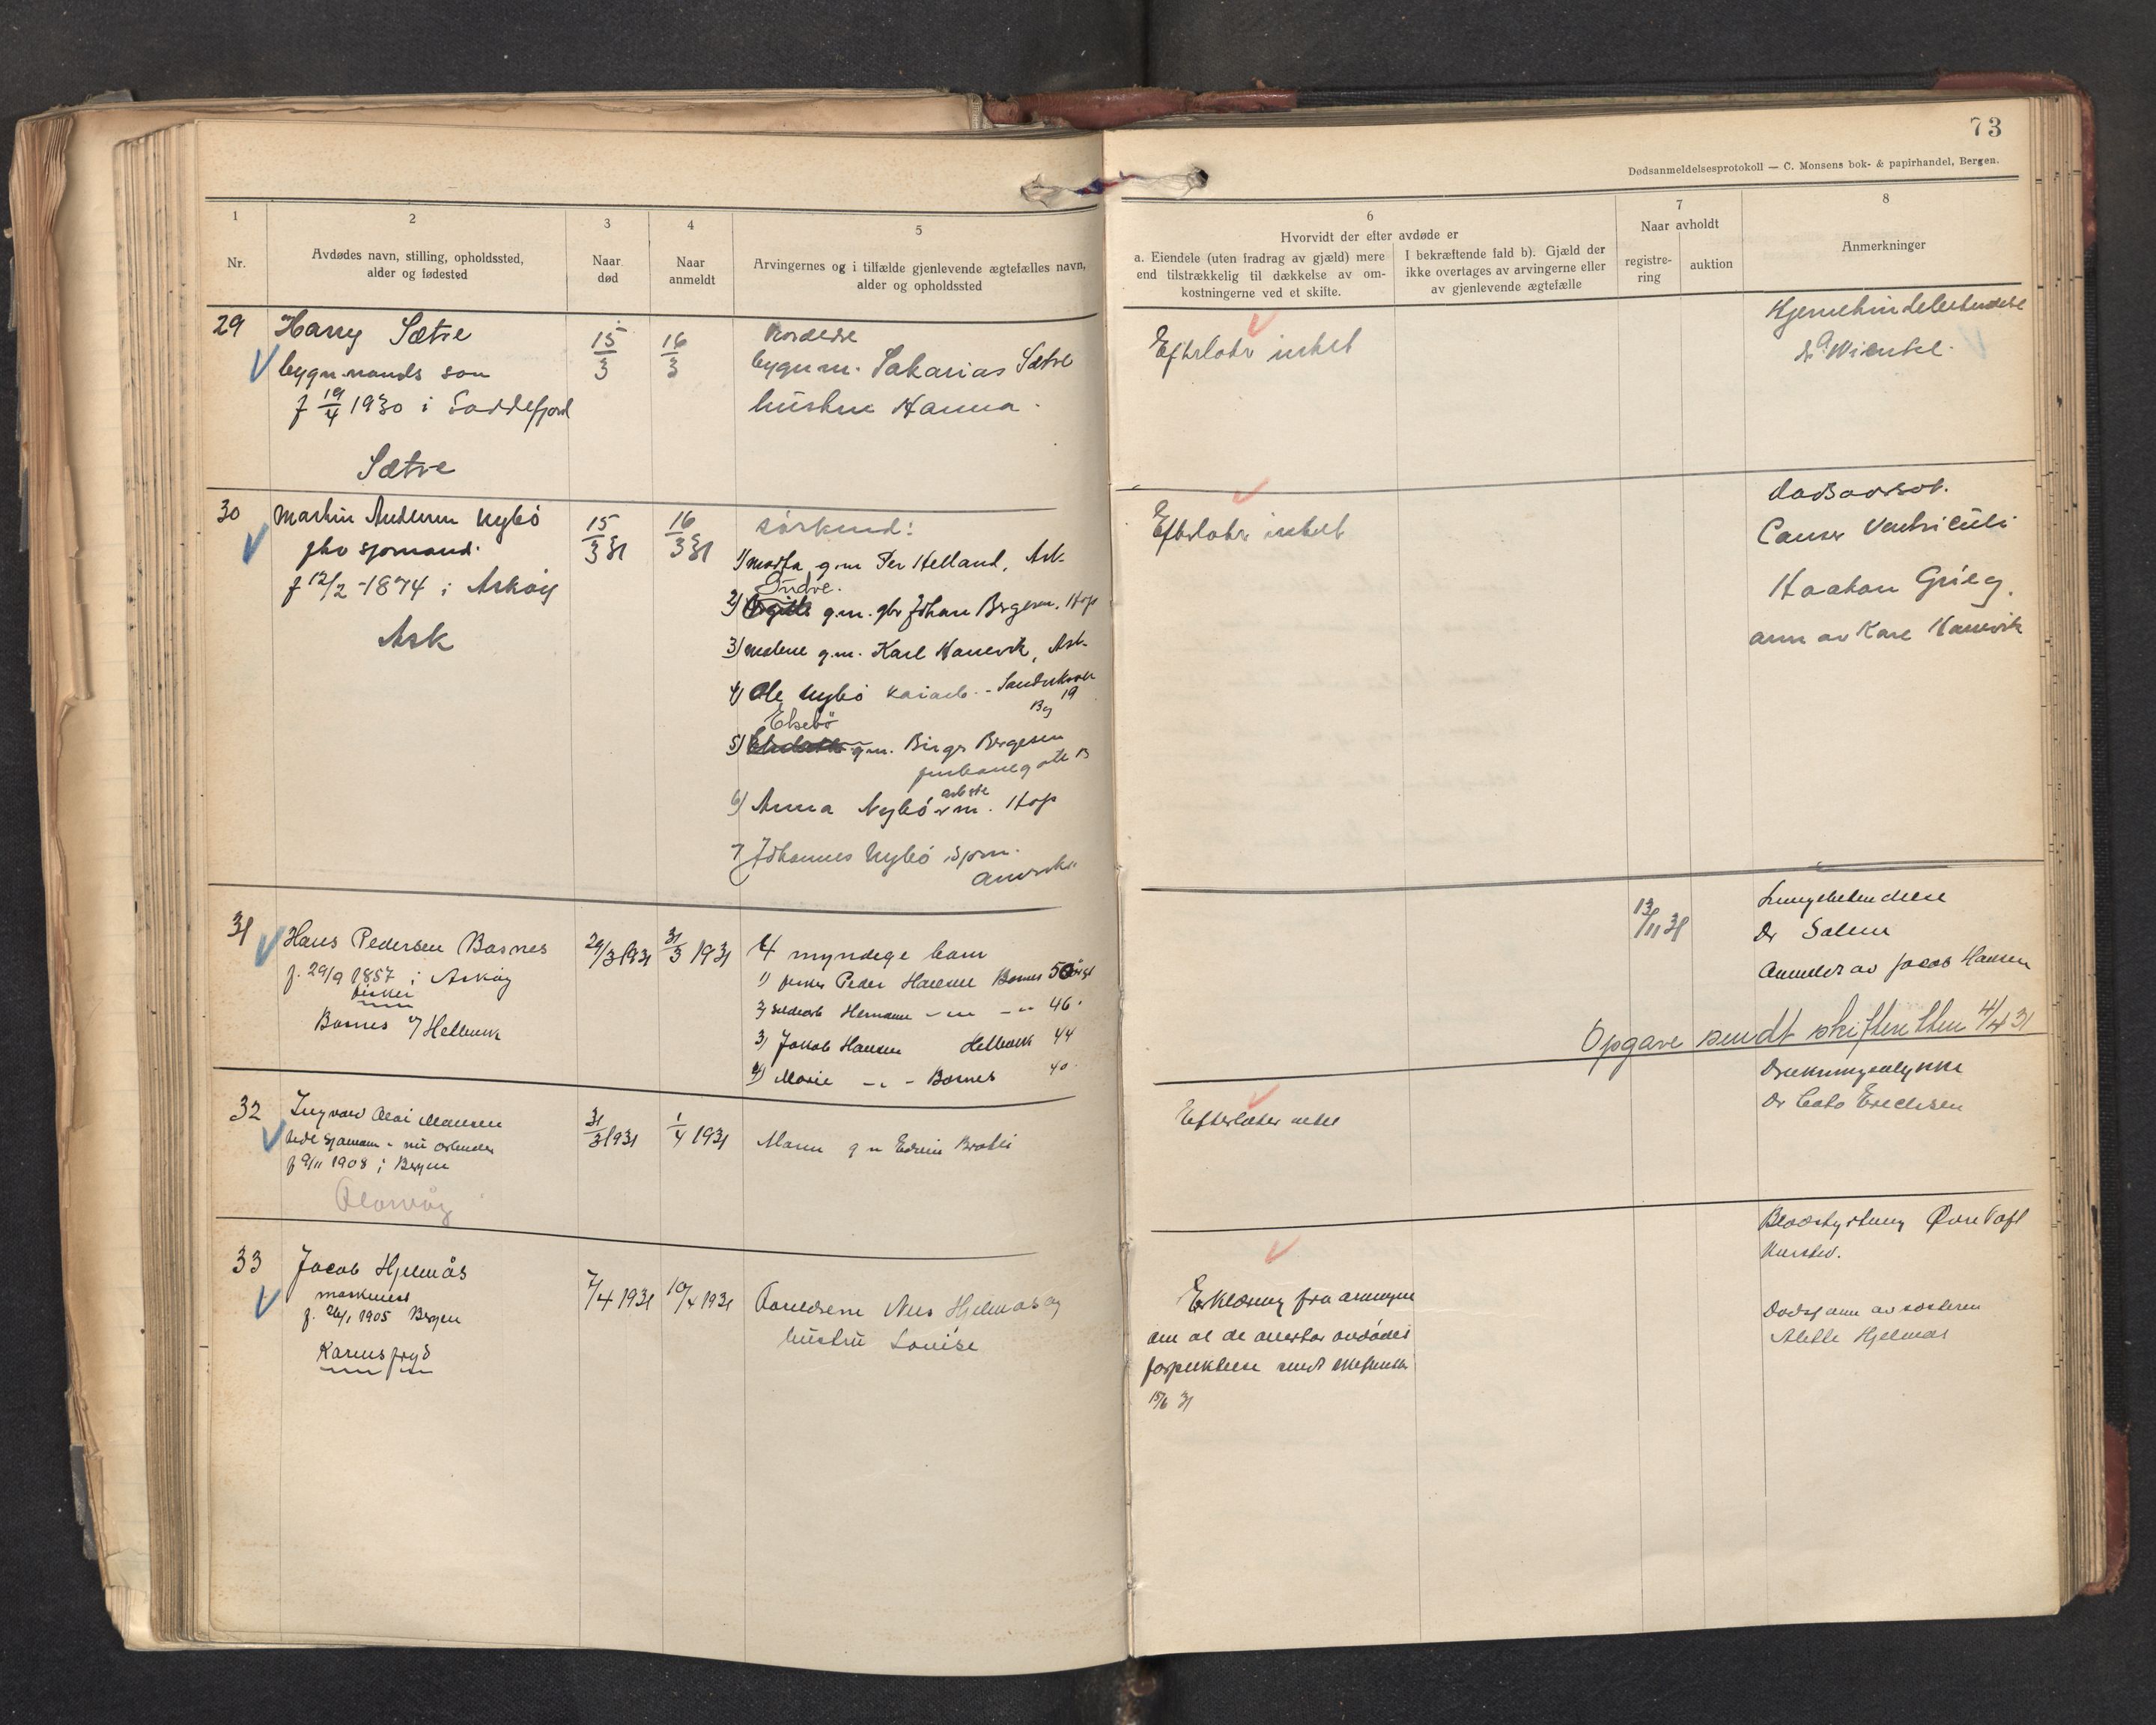 73
Dødsanmeldelsesprotokoll — C. Monsens bok- & papirhandel, Bergen.
1
Nr.
2
Avdødes navn, stilling, opholdssted,
alder og fødested
3
Naar
død
4
Naar
anmeldt
5
Arvingernes og i tilfælde gjenlevende ægtefælles navn,
alder og opholdssted
6
Hvorvidt der efter avdøde er
a. Eiendele (uten fradrag av gjæld) mere
end tilstrækkelig til dækkelse av om-
kostningerne ved et skifte.
I bekræftende fald b). Gjæld der
ikke overtages av arvingerne eller
av gjenlevende ægtefælle
7
Naar avholdt
registre-
ring
auktion
8
Anmerkninger
29
Harry Sætre
bygn.mands søn
f 19/4 1930 i Loddefjord
Sætre
15/3
16/3
bygnm. Sakarias Sætre
hustru Hanna.
Efterlater intet
30
Martin Andersen Nybö
gbr sjömand.
f 12/2 - 1874 i Asköy
Ask
15/3 31
16/3 31
særkuld:
1) g.m. Per Helland, Ask
Indre.
2) g.m. gbr Johan Bergesen. Hop
3) Malene g.m. Karl Hanevik, Ask
4) Ole Nybö kaiarb. - Sandviksvn
19
Elsebö
5) g.m. Birger Bergesen
6) Anna Nybö Hop
7 Johannes Nybö sjöm.
Amerika
Efterlater intet
dødsattest.
Cancer Ventriculi
Haakon Grieg.
anm av Karl Hanevik
31
Hans Pedersen Bosnes
f. 29/9 1857 i Asköy
fisker
Bosnes Hetlevik
29/3 1931
31/3 1931
4 myndige barn
1) fisker Peder Hansen Bosnes 50
2) Hermann 46.
3) Jakob Hansen Hetlevik 44
4) Marie - - Bosnes 40
13/11 31
Lungebetendelse
Dr Salen
Anmeldt av Jacob Hansen
Opgave sendt skifteretten 4/4 31
32
Ingvald Olai Hansen
f 9/11 1908 i Bergen
31/3 1931
1/4 1931
Efterlater intet
Drukningsulykke
Dr Cato Erichsen
33
Jacob Hjelmås
maskinist
1905 Bergen
Karensfryd
7/4 1931
10/4 1931
Forældrene Nils Hjelmås og
hustru Louise
Erklæring fra arvingene
om at de overtar avdødes
forpliktelse sendt skifteretten
15/6 31
Blodstyrtning
Dødsf anm av søsteren
Alette Hjelmås